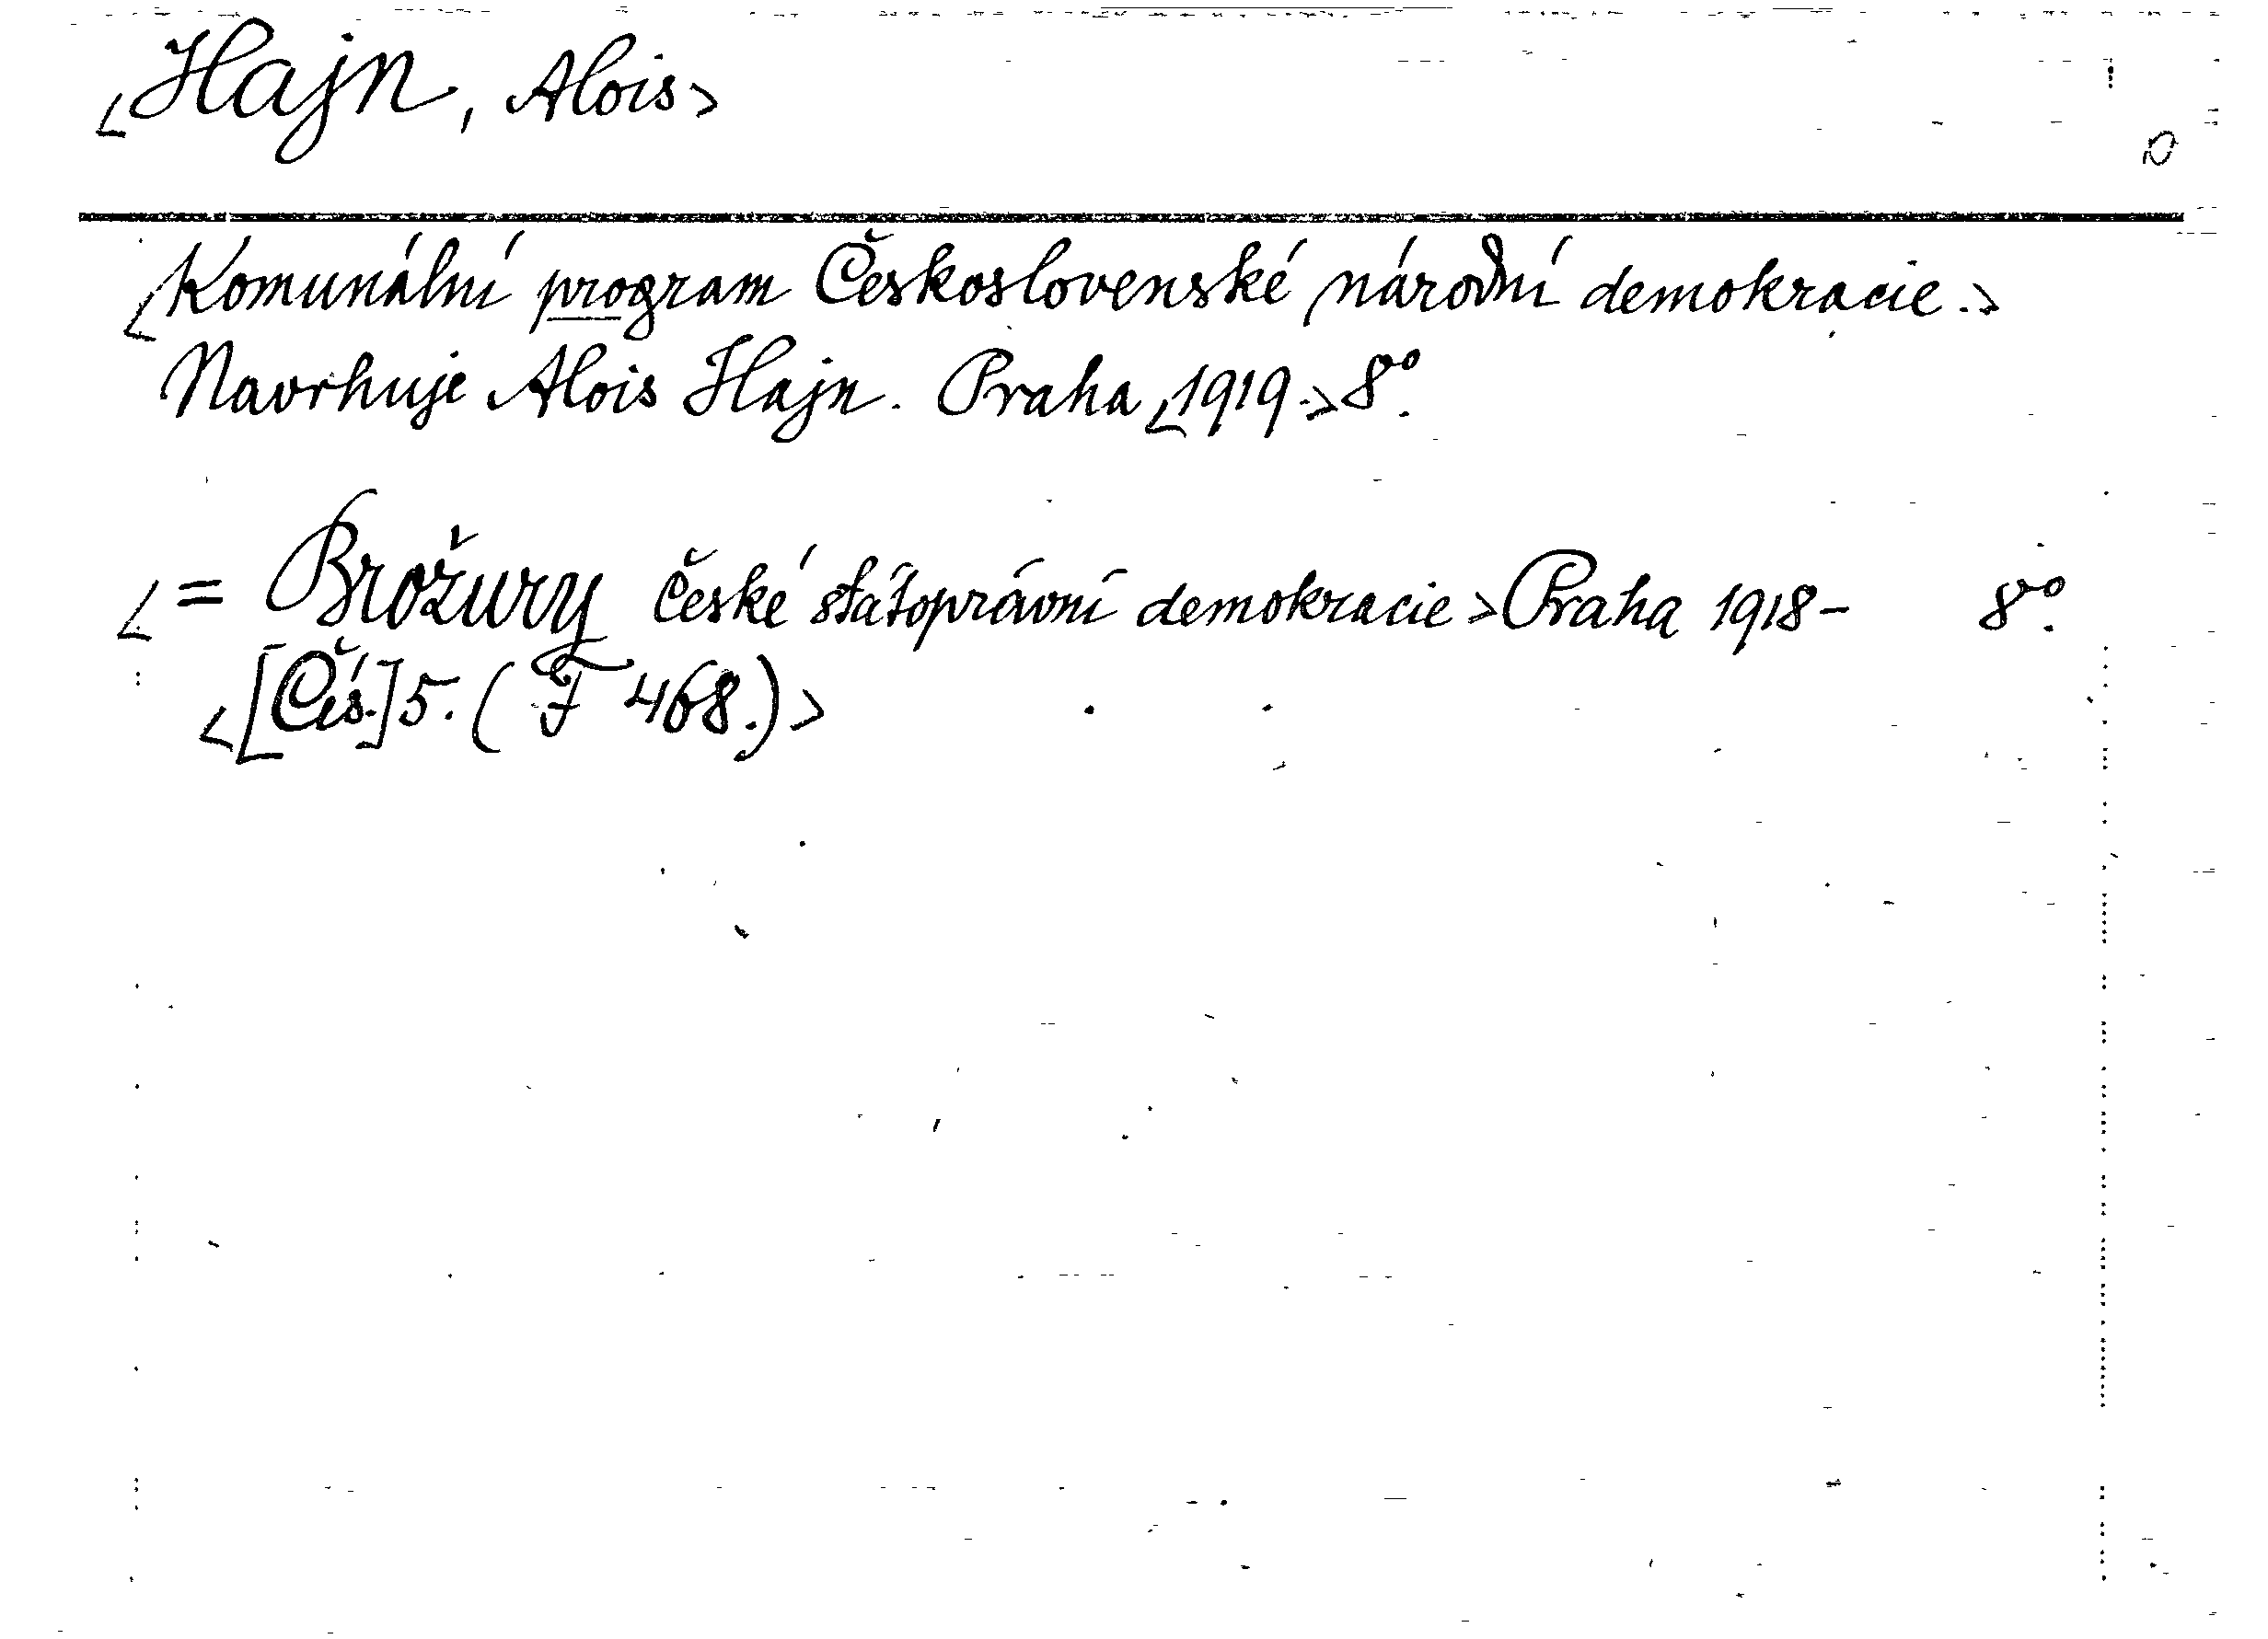 <Hajn, Alois>
<Komunální program Československé národní demokracie.>
Navrhuje Alois Hajn. Praha <1919.> 8°.
<= Brožury české státoprávní demokracie> Praha 1918- 8°.
<[Čís.] 5. (F 468.)>